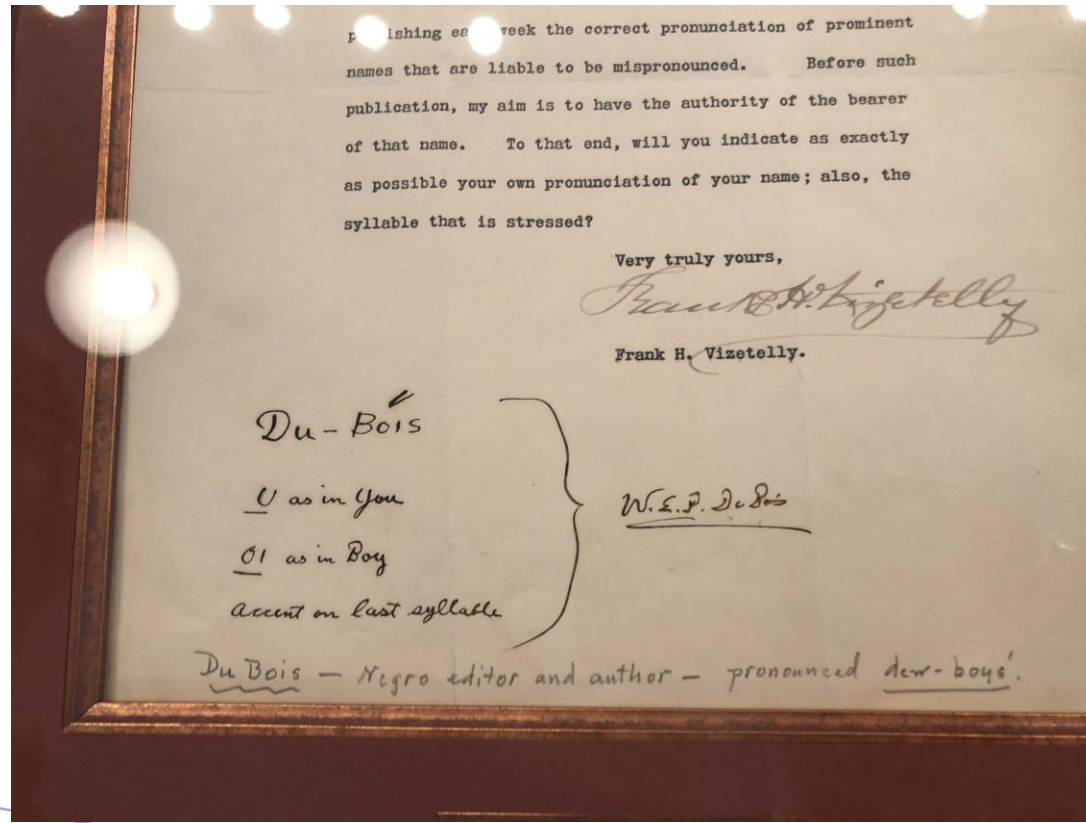 ishing ea week the correct pronunciation of prominent
names that are liable to be mispronounced. Before such
publication, my aim is to have the authority of the bearer
of that name. To that end, will you indicate as exactly
as possible your own pronunciation of your name; also, the
syllable that is stressed?
Very truly yours,
Frank H. Vizetelly
Frank H. Vizetelly.
Du-Bois
U as in You
OI as in Boy
accent on last syllable
W.E.B. Du Bois
Du Bois — Negro editor and author — pronounced dew-boys'.